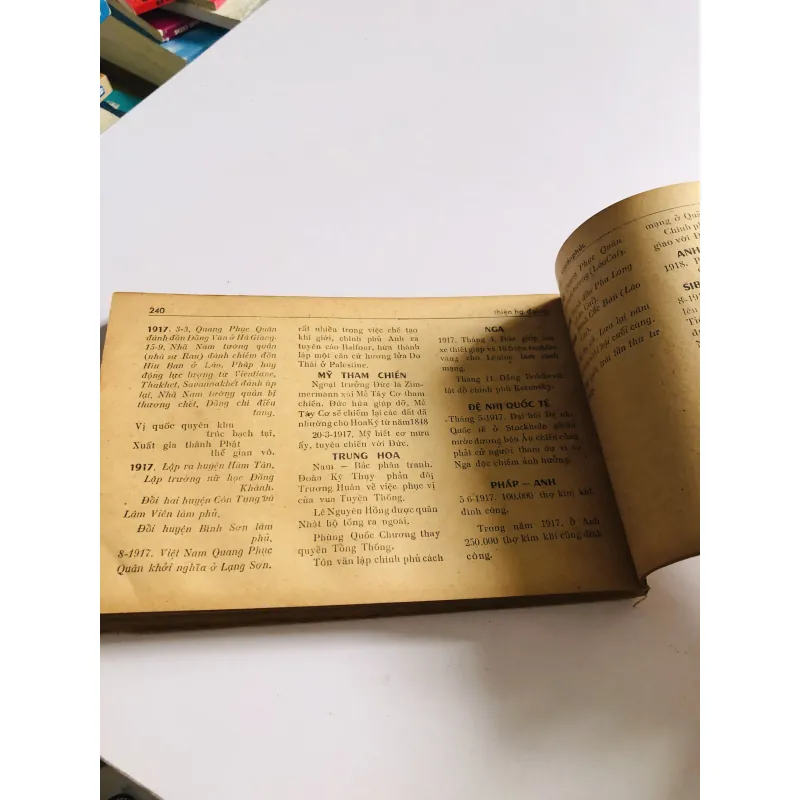 240
thiện hạ
1917. 3-3. Quang Phục Quân
đánh đồn Đồng Văn ở Hà Giang.
15-9. Nhã Nam tướng quân
(nhà sư Rau) đánh chiếm đồn
Hiu Ban ở Lào, Pháp huy
động lực lượng từ Vientiane,
Thakhet, Savannakhet đánh áp
lại, Nhã Nam tướng quân bị
thương chết, Đồng chí điếu
tang.
Vị quốc quyên khu
trúc bạch tại,
Xuất gia thành Phật
thế gian vô.
1917. Lập ra huyện Hàm Tân.
Lập trường nữ học Đồng
Khánh.
Đổi hai huyện Côn Tung và
Lâm Viên làm phủ.
Đổi huyện Bình Sơn làm
phủ.
8-1917. Việt Nam Quang Phục
Quân khởi nghĩa ở Lạng Sơn.
rất nhiều trong việc chế tạo
khí giới, chính phủ Anh ra
tuyên cáo Balfour, hứa thành
lập một căn cứ hương lửa Do
Thái ở Palestine.
MỸ THAM CHIẾN
Ngoại trưởng Đức là Zim-
mermann xúi Mễ Tây Cơ tham
chiến. Đức hứa giúp đỡ, Mễ
Tây Cơ sẽ chiếm lại các đất đã
nhường cho Hoa Kỳ từ năm 1848
20-3-1917. Mỹ biết cơ mưu
ấy, tuyên chiến với Đức.
TRUNG HOA
Nam — Bắc phân tranh.
Đoàn Kỳ Thụy phản đối
Trương Huân về việc phục vị
của vua Tuyên Thống.
Lê Nguyên Hồng được quân
Nhật hộ tống ra ngoài.
Phùng Quốc Chương thay
quyền Tổng Thống.
Tôn văn lập chính phủ cách
NGA
1917. Tháng 4. Đức giúp
xe thiết giáp và
vàng cho Lénine làm cách
mạng.
Tháng 11. Đảng
lật đổ chính phủ Kerensky.
ĐỆ NHỊ QUỐC TẾ
Tháng 5-1917. Đại hội Đệ nhị
Quốc tế ở Stockholm
nước đương bận Âu chiến
phải cử người tham dự vì
Nga độc chiếm ảnh hưởng.
PHÁP — ANH
5-6-1917. 100.000 thợ kim khí
đình công.
Trong năm 1917, ở Anh
250.000 thợ kim khí cũng đình
công.
Phục Quân
(Lào Cai).
đồn Pha Long
Cốc Bàn (Lào
lưu lại năm
cuối cùng.
lần thứ tư
mạng ở
Chính
giao với
ANH
1918.
SIB
8-1
lên